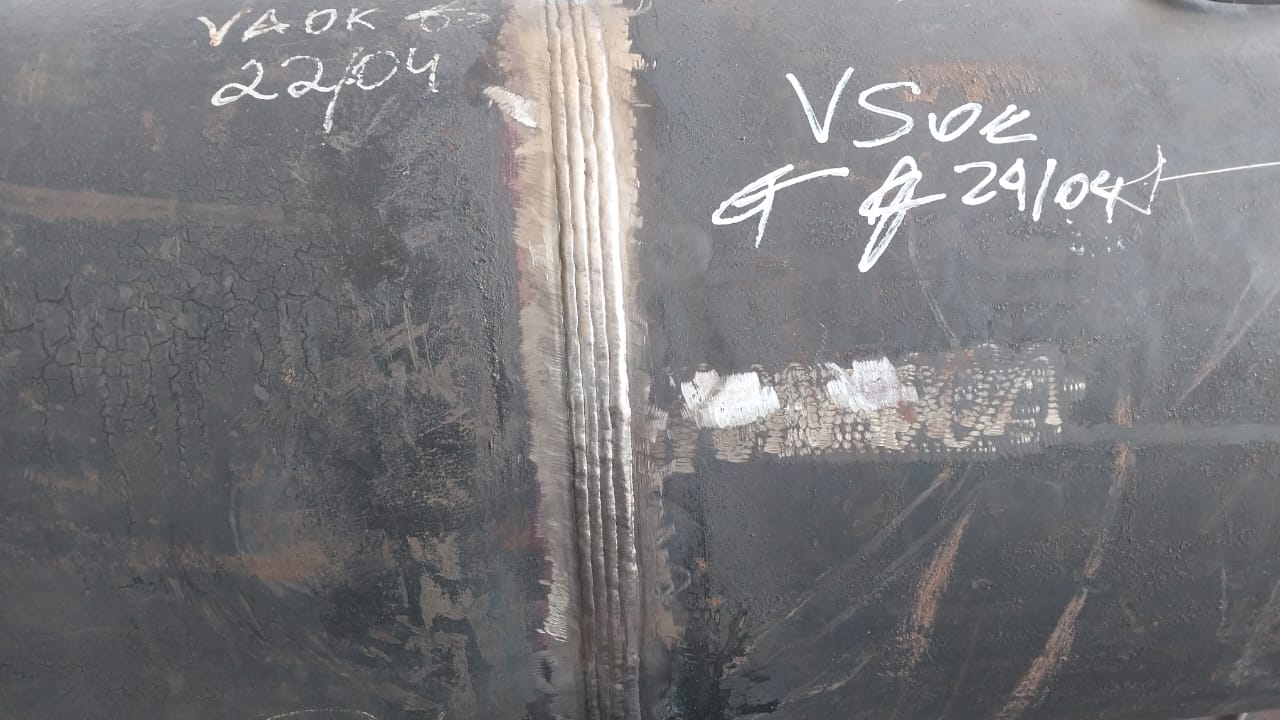 VAOK
22/04
VSOK
29/04